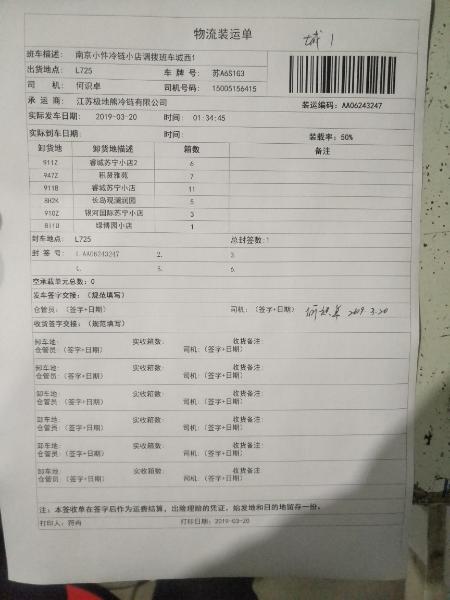 物流装运单
城1
班车描述: 南京小件冷链小店调拨班车城西1
出货地点: L725 车牌号: 苏A6S1G3
司机: 何识卓 司机号码: 15005156415
承运商: 江苏极地熊冷链有限公司 装运编码: AA06243247
实际发车日期: 2019-03-20 时间: 01:34:45
实际到车日期: 时间: 装载率: 50%
卸货地 卸货地描述 箱数 备注
911Z 睿城苏宁小店2 6
947Z 积贤雅苑 7
911B 睿城苏宁小店 11
8H2K 长岛观澜润园 5
910Z 银河国际苏宁小店 3
811D 绿博园小店 1
封车地点: L725 总封签数:1
封签号: 1.AA06243247 2. 3.
4. 5. 6.
空承载单元总数: 0
发车签字交接: (规范填写)
仓管员: (签字+日期) 司机: (签字+日期) 何识卓 2019.3.20
收货签字交接: (规范填写)
卸车地: 实收箱数: 收货备注:
仓管员: (签字+日期) 司机: (签字+日期)
卸车地: 实收箱数: 收货备注:
仓管员: (签字+日期) 司机: (签字+日期)
卸车地: 实收箱数: 收货备注:
仓管员: (签字+日期) 司机: (签字+日期)
卸车地: 实收箱数: 收货备注:
仓管员: (签字+日期) 司机: (签字+日期)
卸车地: 实收箱数: 收货备注:
仓管员: (签字+日期) 司机: (签字+日期)
卸车地: 实收箱数: 收货备注:
仓管员: (签字+日期) 司机: (签字+日期)
注: 本签收单在签字后作为运费结算, 出险理赔的凭证, 始发地和目的地留存一份。
打印人: 符冉 打印日期: 2019-03-20